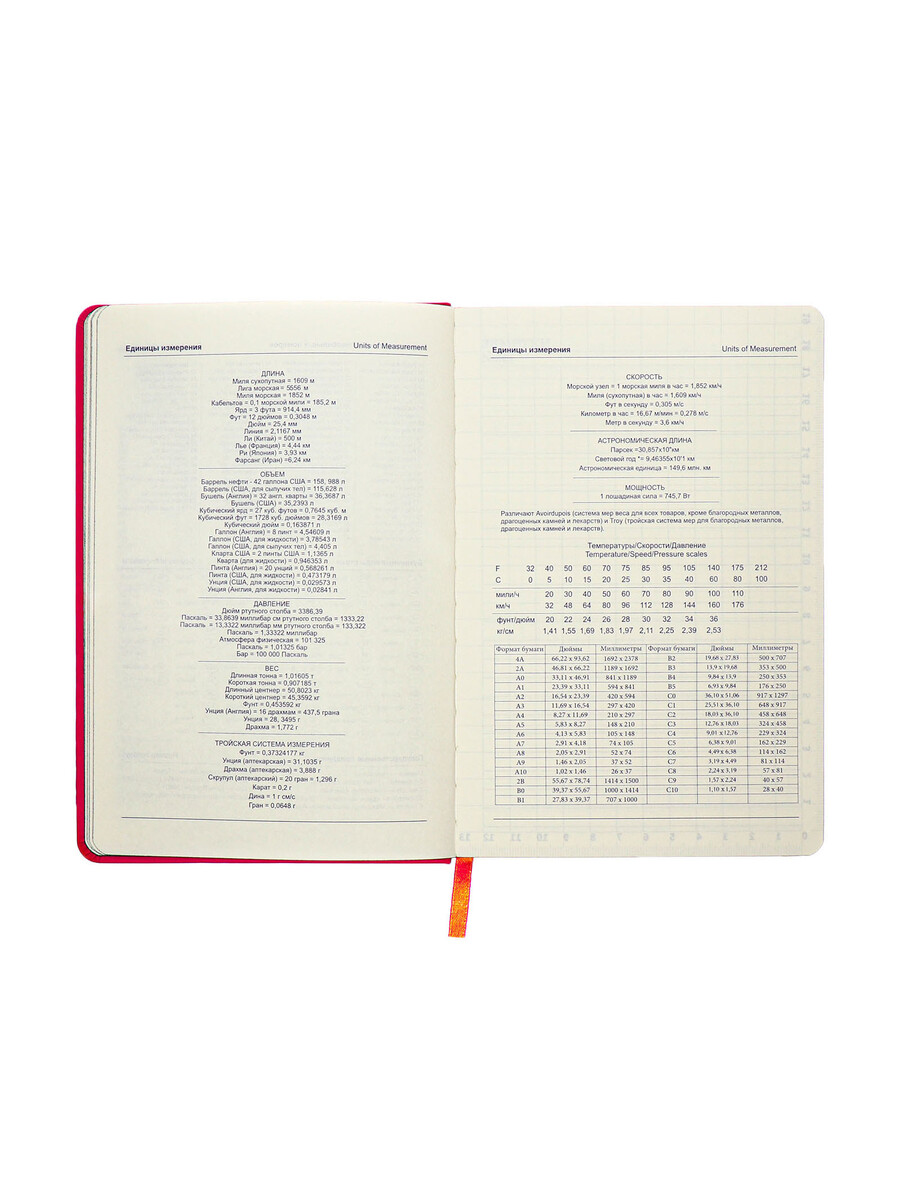 Единицы измерения Units of Measurement
ДЛИНА
Миля сухопутная = 1609 м
Лига морская = 5556 м
Миля морская = 1852 м
Кабельтов = 0,1 морской мили = 185,2 м
Ярд = 3 фута = 914,4 мм
Фут = 12 дюймов = 0,3048 м
Дюйм = 25,4 мм
Линия = 2,1167 мм
Ли (Китай) = 500 м
Лье (Франция) = 4,44 км
Ри (Япония) = 3,93 км
Фарсанг (Иран) =6,24 км
ОБЪЕМ
Баррель нефти - 42 галлона США = 158, 988 л
Баррель (США, для сыпучих тел) = 115,628 л
Бушель (Англия) = 32 англ. кварты = 36,3687 л
Бушель (США) = 35,2393 л
Кубический ярд = 27 куб. футов = 0,7645 куб. м
Кубический фут = 1728 куб. дюймов = 28,3169 л
Кубический дюйм = 0,163871 л
Галлон (Англия) = 8 пинт = 4,54609 л
Галлон (США, для жидкости) = 3,78543 л
Галлон (США, для сыпучих тел) = 4,405 л
Кларта США = 2 пинты США = 1,1365 л
Кварта (для жидкости) = 0,946353 л
Пинта (Англия) = 20 унций = 0,568261 л
Пинта (США, для жидкости) = 0,473179 л
Унция (США, для жидкости) = 0,029573 л
Унция (Англия, для жидкости) = 0,02841 л
ДАВЛЕНИЕ
Дюйм ртутного столба = 3386,39
Паскаль = 33,8639 миллибар см ртутного столба = 1333,22
Паскаль = 13,3322 миллибар мм ртутного столба = 133,322
Паскаль = 1,33322 миллибар
Атмосфера физическая = 101 325
Паскаль = 1,01325 бар
Бар = 100 000 Паскаль
ВЕС
Длинная тонна = 1,01605 т
Короткая тонна = 0,907185 т
Длинный центнер = 50,8023 кг
Короткий центнер = 45,3592 кг
Фунт = 0,453592 кг
Унция (Англия) = 16 драхмам = 437,5 грана
Унция = 28, 3495 г
Драхма = 1,772 г
ТРОЙСКАЯ СИСТЕМА ИЗМЕРЕНИЯ
Фунт = 0,37324177 кг
Унция (аптекарская) = 31,1035 г
Драхма (аптекарская) = 3,888 г
Скрупул (аптекарский) = 20 гран = 1,296 г
Карат = 0,2 г
Дина = 1 г см/с
Гран = 0,0648 г
Единицы измерения Units of Measurement
СКОРОСТЬ
Морской узел = 1 морская миля в час = 1,852 км/ч
Миля (сухопутная) в час = 1,609 км/ч
Фут в секунду = 0,305 м/с
Километр в час = 16,67 м/мин = 0,278 м/с
Метр в секунду = 3,6 км/ч
АСТРОНОМИЧЕСКАЯ ДЛИНА
Парсек =30,857x10"км
Световой год "= 9,46355x10"1 км
Астрономическая единица = 149,6 млн. км
МОЩНОСТЬ
1 лошадиная сила = 745,7 Вт
Различают Avoirdupois (система мер веса для всех товаров, кроме благородных металлов,
драгоценных камней и лекарств) и Troy (тройская система мер для благородных металлов,
драгоценных камней и лекарств).
Температуры/Скорости/Давление
Temperature/Speed/Pressure scales
F 32 40 50 60 70 75 85 95 105 140 175 212
C 0 5 10 15 20 25 30 35 40 60 80 100
мили/ч 20 30 40 50 60 70 80 90 100 110
км/ч 32 48 64 80 96 112 128 144 160 176
фунт/дюйм 20 22 24 26 28 30 32 34 36
кг/см 1,41 1,55 1,69 1,83 1,97 2,11 2,25 2,39 2,53
Формат бумаги Дюймы Миллиметры Формат бумаги Дюймы Миллиметры
4A 66,22 x 93,62 1692 x 2378 B2 19,68 x 27,83 500 x 707
2A 46,81 x 66,22 1189 x 1692 B3 13,9 x 19,68 353 x 500
A0 33,11 x 46,91 841 x 1189 B4 9,84 x 13,9 250 x 353
A1 23,39 x 33,11 594 x 841 B5 6,93 x 9,84 176 x 250
A2 16,54 x 23,39 420 x 594 C0 36,10 x 51,06 917 x 1297
A3 11,69 x 16,54 297 x 420 C1 25,51 x 36,10 648 x 917
A4 8,27 x 11,69 210 x 297 C2 18,03 x 36,10 458 x 648
A5 5,83 x 8,27 148 x 210 C3 12,76 x 18,03 324 x 458
A6 4,13 x 5,83 105 x 148 C4 9,01 x 12,76 229 x 324
A7 2,91 x 4,18 74 x 105 C5 6,38 x 9,01 162 x 229
A8 2,05 x 2,91 52 x 74 C6 4,49 x 6,38 114 x 162
A9 1,46 x 2,05 37 x 52 C7 3,19 x 4,49 81 x 114
A10 1,02 x 1,46 26 x 37 C8 2,24 x 3,19 57 x 81
2B 55,67 x 78,74 1414 x 1500 C9 1,57 x 2,24 40 x 57
B0 39,37 x 55,67 1000 x 1414 C10 1,10 x 1,57 28 x 40
B1 27,83 x 39,37 707 x 1000